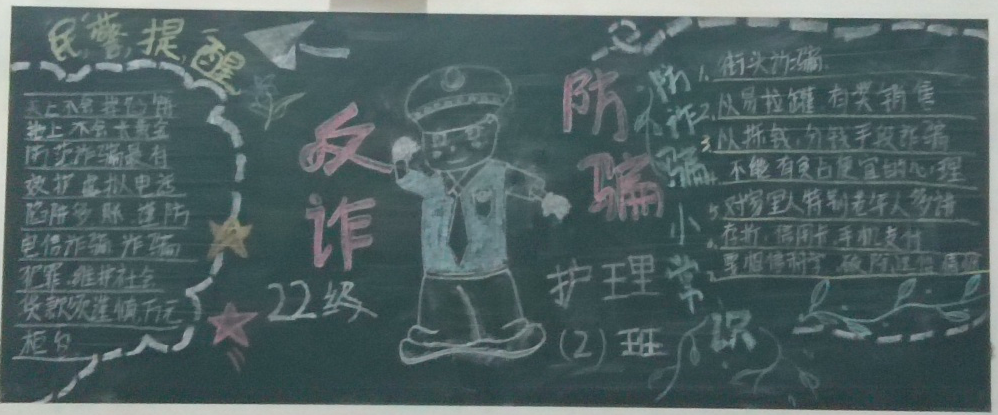 民警提醒
天上不会掉馅饼
地上不会
防范诈骗最有
效 虚拟电话
陷阱多 谨防
电信诈骗 诈骗
犯罪 维护社会
贷款须谨慎
反诈
22级
防骗
护理
(2)班
防诈骗小常识
1. 街头诈骗
2. 以易拉罐有奖销售
3. 以拣钱,分钱手段诈骗
不能有贪占便宜的心理
5. 对家里人特别老年人多讲
存折、信用卡、手机支付